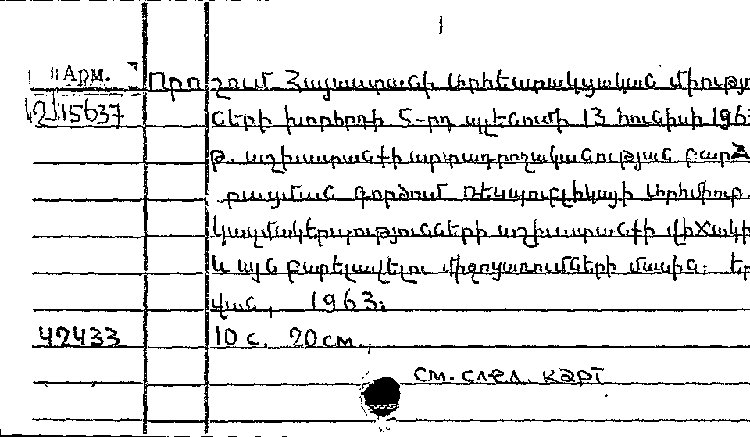 Арм. Որոշում Հայաստանի արհեստակցական միությու
2/15637 ների խորհրդի 5-րդ պլենումի 13 հունիսի 1963
թ. աշխատանքի արտադրողականության բարձ
րացման գործում ռեսպուբլիկայի
կազմակերպությունների աշխատանքի վիճակի
և այն բարելավելու միջոցառումների մասին: Եր
վան, 1963:
42433 10 с. 20 см.
см. след. карт